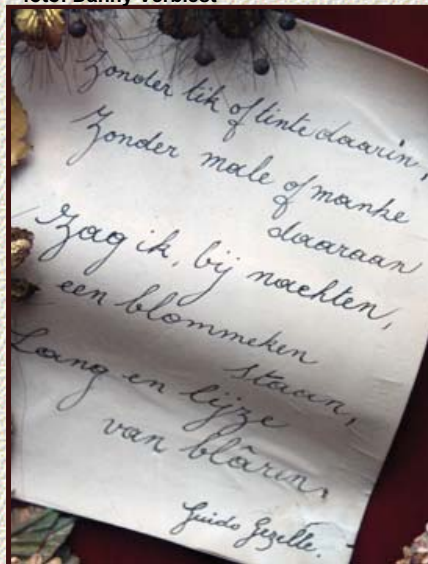 foto: Danny Verbiest
Zonder tik of tinte daarin,
Zonder male of manke
daaraan
Zag ik, bij nachten,
een blommeken
staan,
Lang en lijze
van blârin.
Guido Gezelle.